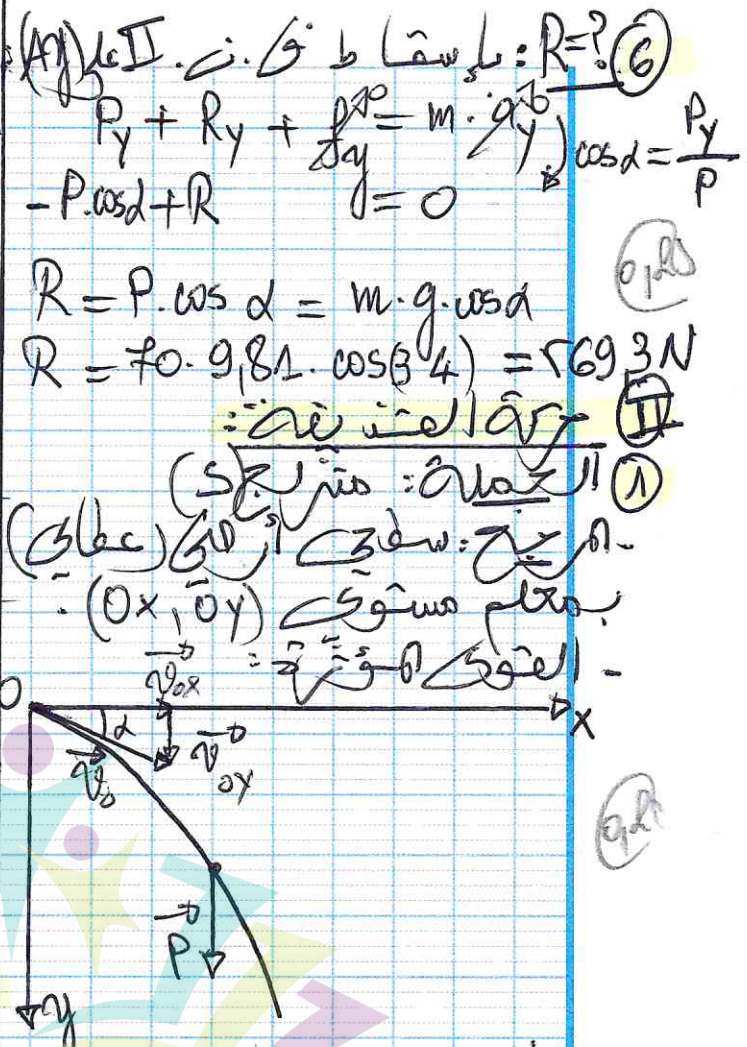 ⑥ R=? : بإسقاط ق.ن.II على (Ay):
P_y + R_y + f_y = m·a_y
cosα = P_y / P
-P.cosα + R = 0
0,25
R = P.cos α = m.g.cosα
R = 70.9,81.cos(34) = 569,3N
Ⅱ حركة القذيفة:
① الجملة: متزلج (S)
- المرجع: سطحي أرضي (عطالي)
بمعلم مستوي (Ox, Oy).
- القوى المؤثرة:
v₀ₓ
O x
α
v₀ v₀y
0,25
P
y